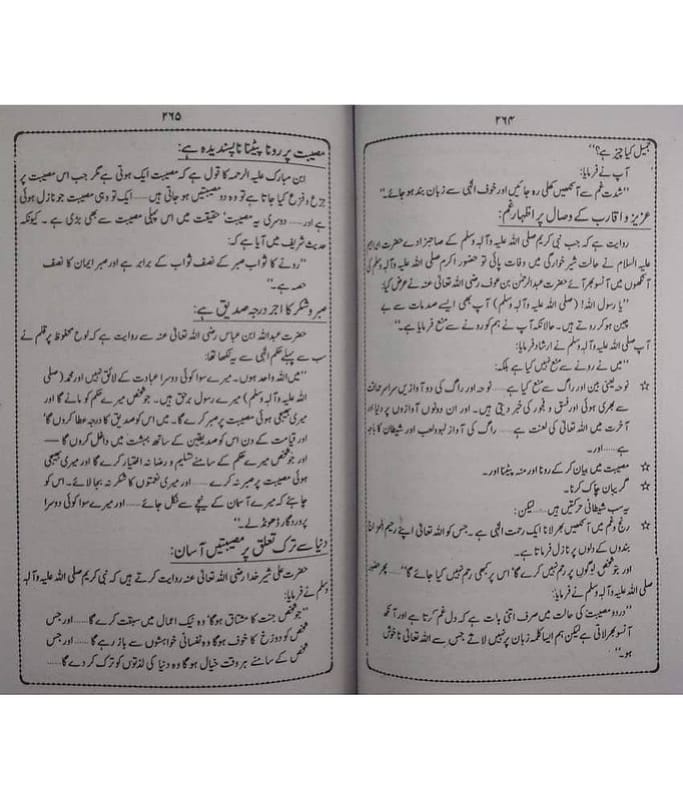 ۲۶۴
جمیل کیا چیز ہے؟"
آپ نے فرمایا:
"شدت غم سے آنکھیں کھلی رہ جائیں اور خوف الٰہی سے زبان بند ہو جائے۔"
عزیز و اقارب کے وصال پر اظہار غم:
روایت ہے کہ جب نبی کریم صلی اللہ علیہ وآلہ وسلم کے صاحبزادے حضرت ابراہیم
علیہ السلام نے حالت شیر خوارگی میں وفات پائی تو حضور اکرم صلی اللہ علیہ وآلہ وسلم کی
آنکھوں میں آنسو بھر آئے حضرت عبدالرحمٰن بن عوف رضی اللہ تعالیٰ عنہ نے عرض کیا:
"یا رسول اللہ! (صلی اللہ علیہ وآلہ وسلم) آپ بھی ایسے صدمات سے بے
چین ہو کر روتے ہیں۔ حالانکہ آپ نے ہم کو رونے سے منع فرمایا ہے۔"
آپ صلی اللہ علیہ وآلہ وسلم نے ارشاد فرمایا:
"میں نے رونے سے منع نہیں کیا ہے بلکہ:
☆ نوحہ یعنی بین اور راگ سے منع کیا ہے..... نوحہ اور راگ کی دو آوازیں سراسر حماقت
سے بھری ہوئی اور فسق و فجور کی خبر دیتی ہیں۔ اور ان دونوں آوازوں پر دنیا اور
آخرت میں اللہ تعالیٰ کی لعنت ہے..... راگ کی آواز لہو و لعب اور شیطان کا باجہ
ہے..... اور۔
☆ مصیبت میں بیان کر کے رونا اور منہ پیٹنا اور۔
☆ گریبان چاک کرنا۔
یہ سب شیطانی حرکتیں ہیں..... لیکن:
☆ رنج و غم میں آنکھیں بھر لانا ایک رحمت الٰہی ہے۔ جس کو اللہ تعالیٰ اپنے رحیم المزاج
بندوں کے دلوں پر نازل فرماتا ہے۔
اور جو شخص لوگوں پر رحم نہیں کرے گا، اس پر کبھی رحم نہیں کیا جائے گا" پھر حضور
صلی اللہ علیہ وآلہ وسلم نے فرمایا:
"درد و مصیبت کی حالت میں صرف اتنی بات ہے کہ دل غم کرتا ہے اور آنکھ
آنسو بھر لاتی ہے لیکن ہم ایسا کلمہ زبان پر نہیں لاتے جس سے اللہ تعالیٰ ناخوش
ہو۔"
۲۶۵
مصیبت پر رونا پیٹنا ناپسندیدہ ہے:
ابن مبارک علیہ الرحمہ کا قول ہے کہ مصیبت ایک ہوتی ہے مگر جب اس مصیبت پر
جزع و فزع کیا جاتا ہے تو وہ دو مصیبتیں ہو جاتی ہیں..... ایک تو وہی مصیبت جو نازل ہوئی
ہے اور..... دوسری یہ مصیبت، حقیقت میں اس پہلی مصیبت سے بھی بڑی ہے۔ کیونکہ
حدیث شریف میں آیا ہے کہ:
"رونے کا ثواب صبر کے نصف ثواب کے برابر ہے اور صبر ایمان کا نصف
حصہ ہے۔"
صبر و شکر کا اجر درجہ صدیق ہے:
حضرت عبداللہ ابن عباس رضی اللہ تعالیٰ عنہ سے روایت ہے کہ لوح محفوظ پر قلم نے
سب سے پہلے حکم الٰہی سے یہ لکھا تھا:
"میں اللہ واحد ہوں۔ میرے سوا کوئی دوسرا عبادت کے لائق نہیں اور محمد (صلی
اللہ علیہ وآلہ وسلم) میرے رسول برحق ہیں۔ جو شخص میرے حکم کو مانے گا اور
میری بھیجی ہوئی مصیبت پر صبر کرے گا۔ میں اس کو صدیق کا درجہ عطا کروں گا،
اور قیامت کے دن اس کو صدیقین کے ساتھ بہشت میں داخل کروں گا—
اور جو شخص میرے حکم کے سامنے تسلیم و رضا نہ اختیار کرے گا اور میری بھیجی
ہوئی مصیبت پر صبر نہ کرے گا..... اور میری نعمتوں کا شکر نہ بجا لائے گا۔ اس کو
چاہئے کہ میرے آسمان کے نیچے سے نکل جائے..... اور میرے سوا کوئی دوسرا
پروردگار ڈھونڈ لے۔"
دنیا سے ترک تعلق پر مصیبتیں آسان:
حضرت علی شیر خدا رضی اللہ تعالیٰ عنہ روایت کرتے ہیں کہ نبی کریم صلی اللہ علیہ وآلہ
وسلم نے فرمایا:
"جو شخص جنت کا مشتاق ہوگا، وہ نیک اعمال میں سبقت کرے گا..... اور جس
شخص کو دوزخ کا خوف ہوگا وہ نفسانی خواہشوں سے باز رہے گا..... اور جس
شخص کے سامنے ہر وقت خیال ہوگا وہ دنیا کی لذتوں کو ترک کر دے گا.....